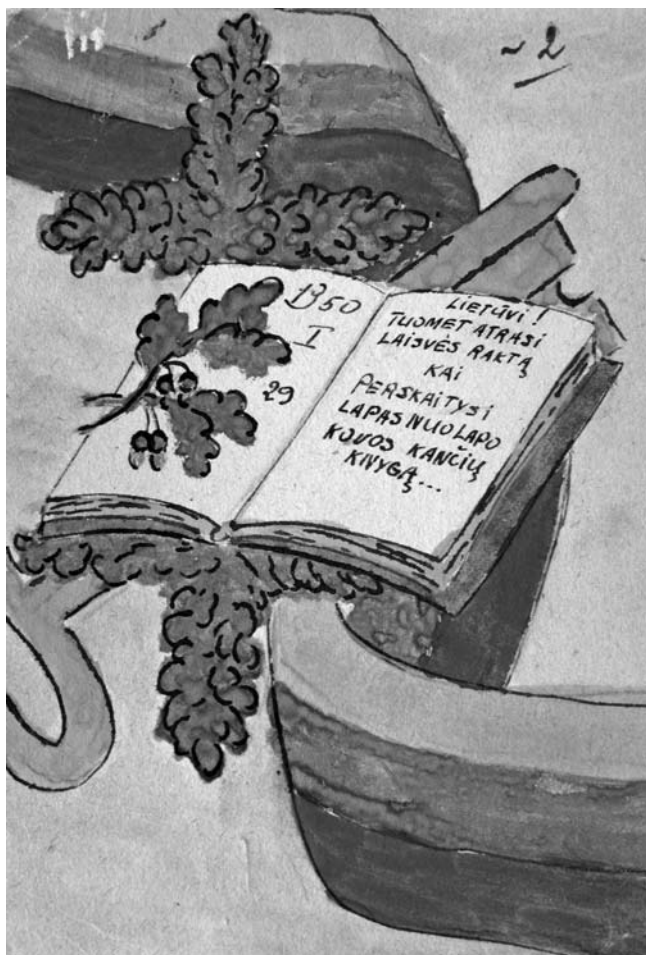 ~ 2
1950
I
29
LIETŪVI !
TUOMET ATRASI
LAISVĖS RAKTĄ
KAI
PERSKAITYSI
LAPAS NUO LAPO
KOVOS KANČIŲ
KNYGĄ...